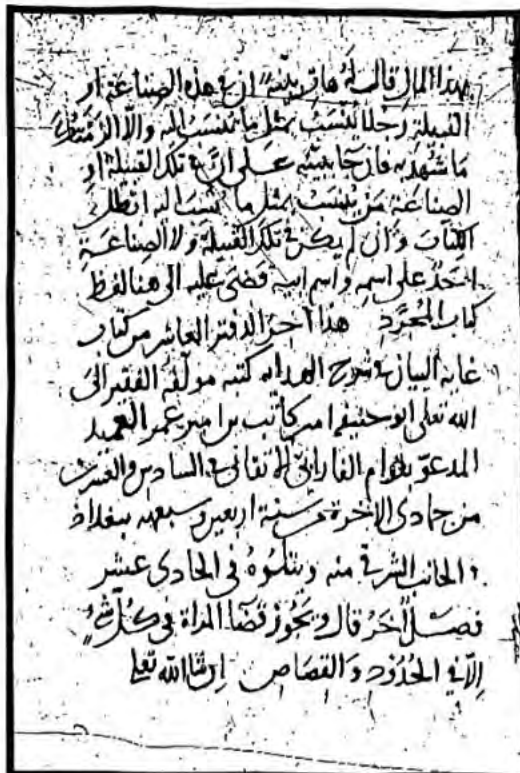 بهذا المال قالت له هات بينة ان في هذه الصناعة او
القبيلة رجلا ينسب بمثل ما ينسب اليه والا الزمتك
ما شهد به فان جا ببينة على ان في تلك القبيلة او
الصناعة من ينسب بمثل ما ينسب اليه ابطلت
الكتاب وان لم يكن في تلك القبيلة ولا الصناعة
احد على اسمه واسم ابيه قضى عليه الى هنا لفظ
كتاب المجرد هذا آخر الدفتر العاشر من كتاب
غاية البيان في شرح الهداية كتبه مولفه الفقير الى
الله تعالى ابو حنيفة امير كاتب بن امير عمر العميد
المدعو بقوام الفارابي الاتقاني في السادس والعشرين
من جمادى الاخرة من سنة اربعين وسبعمية ببغداد
الجانب الشرقي منه ويتلوه في الحادي عشر
فصل آخر قال ويجوز قضا المراة في كل شي
الا في الحدود والقصاص ان شا الله تعالى